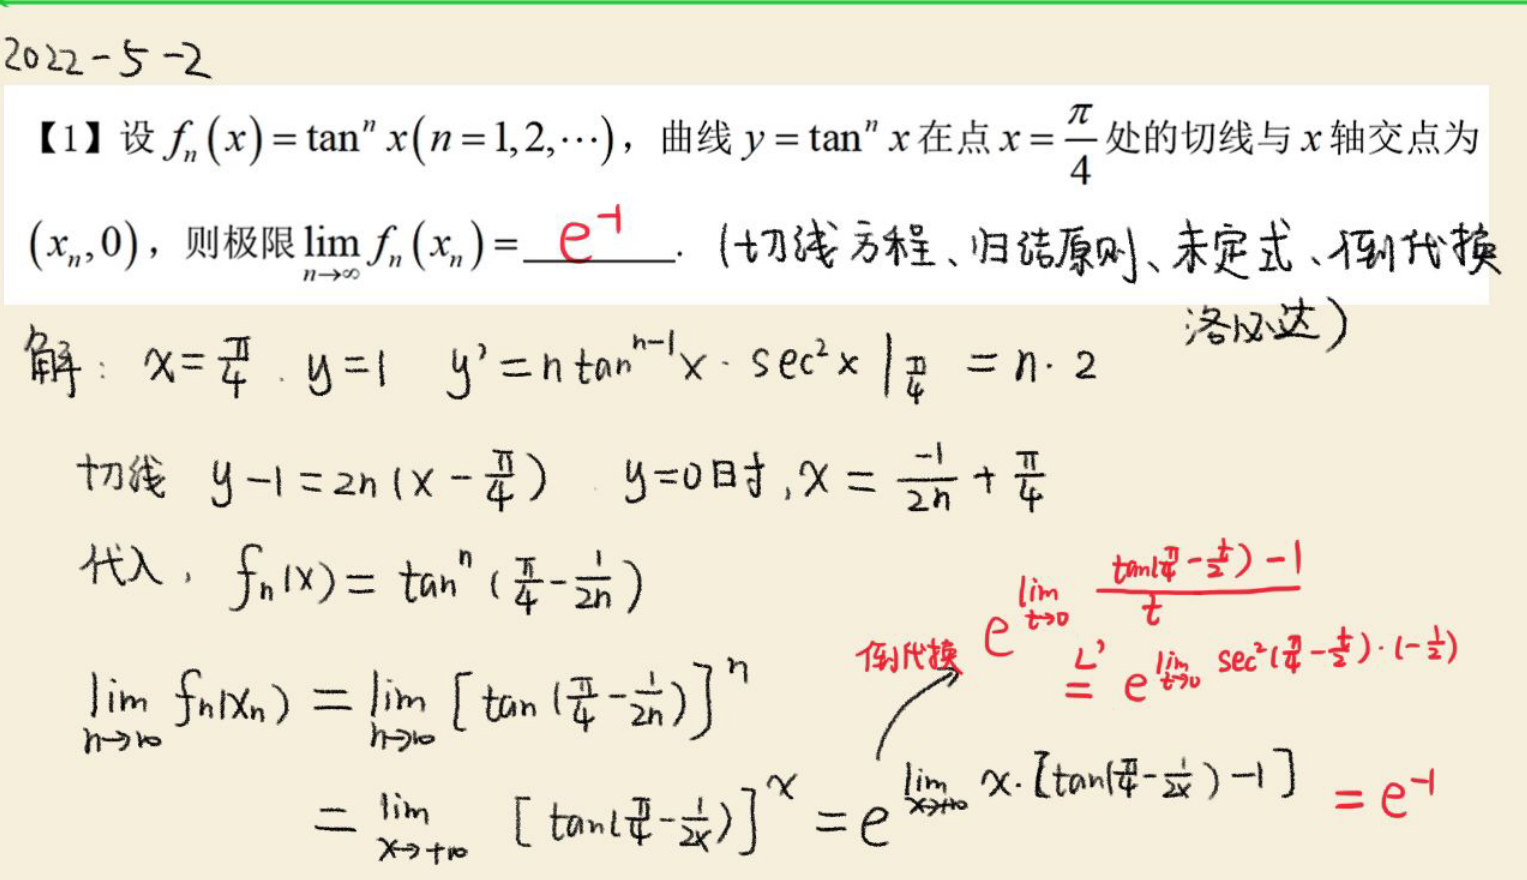 2022-5-2
【1】设 fₙ(x) = tanⁿ x(n = 1,2,⋯)，曲线 y = tanⁿ x 在点 x = π/4 处的切线与 x 轴交点为
(xₙ,0)，则极限 lim_{n→∞} fₙ(xₙ) = e⁻¹. (切线方程、归结原则、未定式、倒代换
洛必达)
解: x = π/4 . y = 1 y' = n tanⁿ⁻¹x · sec²x |_{π/4} = n · 2
切线 y - 1 = 2n (x - π/4) y=0时, x = -1/2n + π/4
代入, fₙ(x) = tanⁿ (π/4 - 1/2n)
lim_{n→∞} fₙ(xₙ) = lim_{n→∞} [tan (π/4 - 1/2n)]ⁿ
= lim_{x→+∞} [tan(π/4 - 1/2x)]^x = e^{lim_{x→+∞} x·[tan(π/4 - 1/2x) - 1]} = e⁻¹
倒代换 e^{lim_{t→0} (tan(π/4 - t/2) - 1)/t}
L' = e^{lim_{t→0} sec²(π/4 - t/2)·(-1/2)}